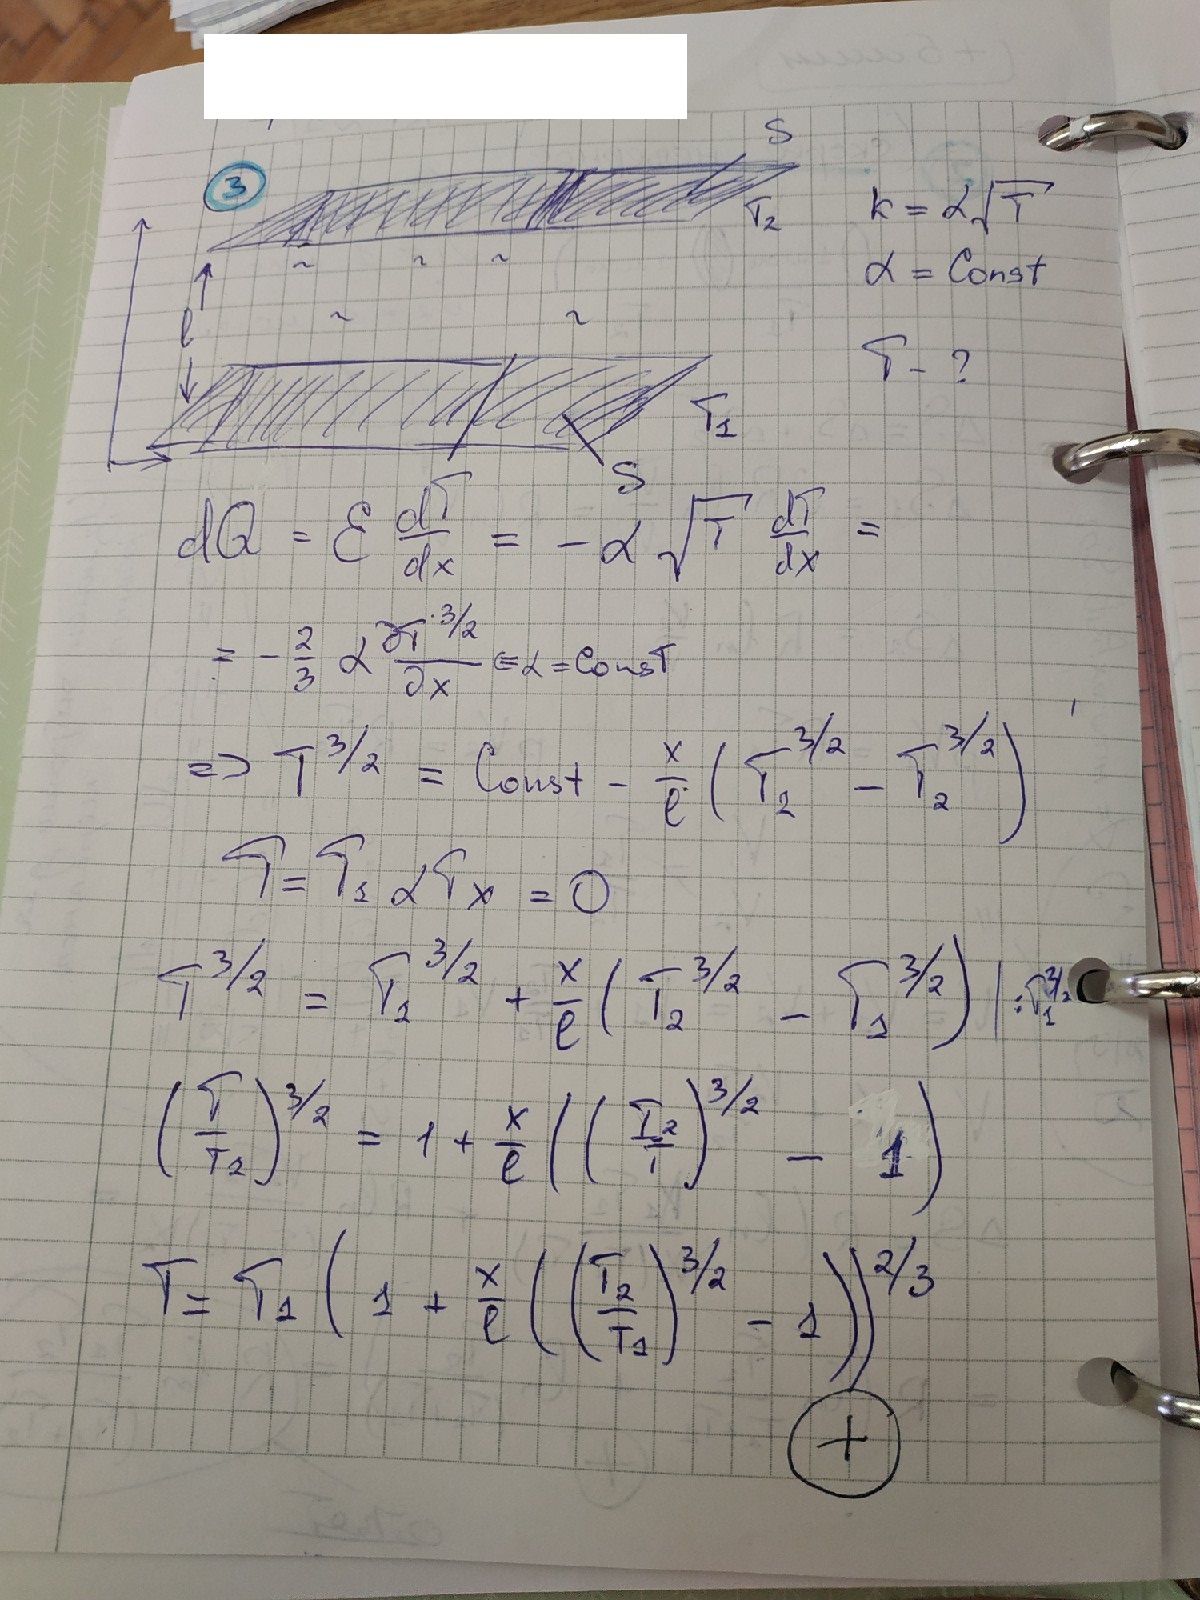 3
S
T₂
k = α√T
α = Const
l
T - ?
T₁
S
dQ = ε dT/dx = -α √T dT/dx =
= -2/3 α ∂T^3/2 / ∂x = α = Const
=> T^3/2 = Const - x/l (T₂^3/2 - T₂^3/2)
T = T₁ αT x = 0
T^3/2 = T₁^3/2 + x/l (T₂^3/2 - T₁^3/2) | : T₁^3/2
(T/T₂)^3/2 = 1 + x/l ((T₂/1)^3/2 - 1)
T = T₁ (1 + x/l ((T₂/T₁)^3/2 - 1))^2/3
+